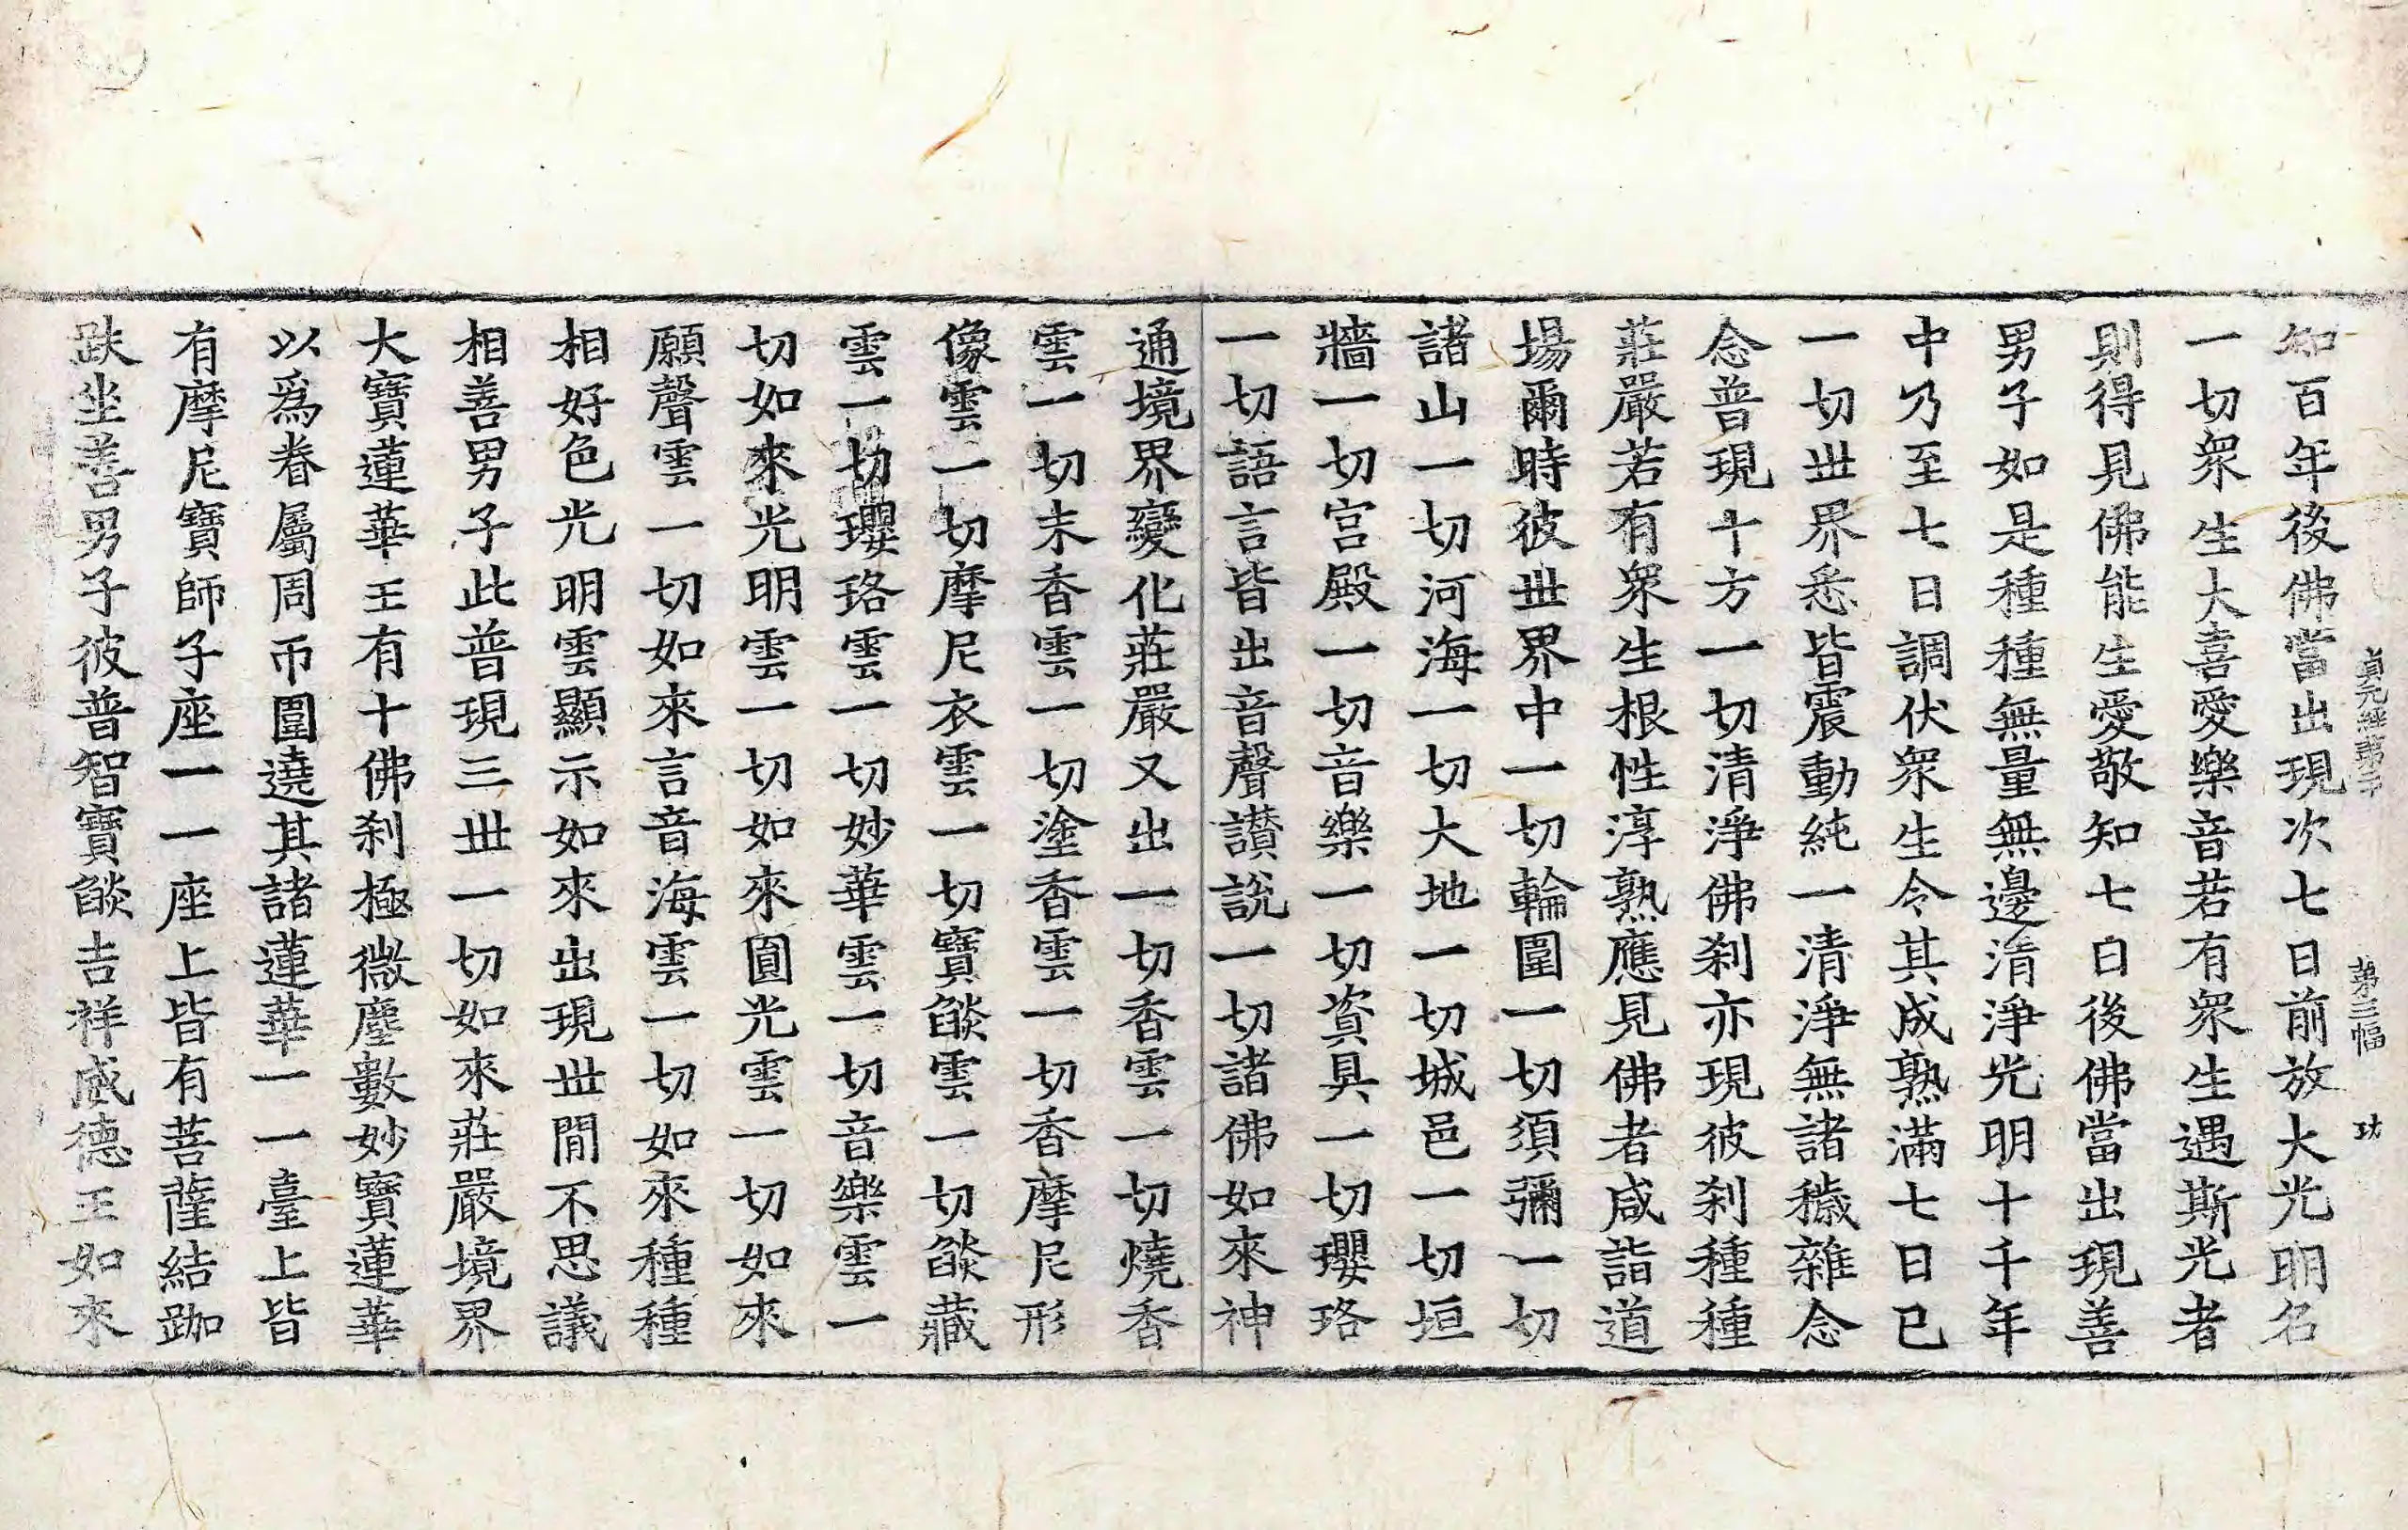 貞元經第二十 第三幅 功
知百年後佛當出現次七日前放大光明名
一切衆生大喜愛樂音若有衆生遇斯光者
則得見佛能生愛敬知七日後佛當出現善
男子如是種種無量無邊淸淨光明十千年
中乃至七日調伏衆生令其成熟滿七日已
一切世界悉皆震動純一清淨無諸穢雜念
念普現十方一切清淨佛刹亦現彼刹種種
莊嚴若有衆生根性淳熟應見佛者咸詣道
場爾時彼世界中一切輪圍一切須彌一切
諸山一切河海一切大地一切城邑一切垣
牆一切宮殿一切音樂一切資具一切瓔珞
一切語言皆出音聲讃說一切諸佛如來神
通境界變化莊嚴又出一切香雲一切燒香
雲一切末香雲一切塗香雲一切香摩尼形
像雲一切摩尼衣雲一切寶燄雲一切燄藏
雲一切瓔珞雲一切妙華雲一切音樂雲一
切如來光明雲一切如來圓光雲一切如來
願聲雲一切如來言音海雲一切如來種種
相好色光明雲顯示如來出現世閒不思議
相善男子此普現三世一切如來莊嚴境界
大寶蓮華王有十佛刹極微塵數妙寶蓮華
以爲眷屬周帀圍遶其諸蓮華一一臺上皆
有摩尼寶師子座一一座上皆有菩薩結跏
趺坐善男子彼普智寶燄吉祥威德王如來